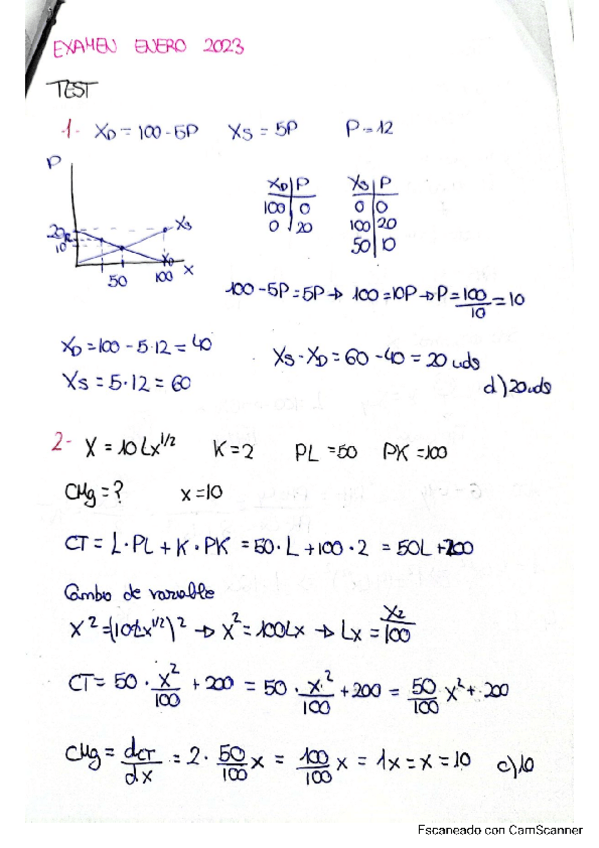 EXAMEN ENERO 2023
TEST
1- XD = 100 - 5P XS = 5P P = 12
P
XD | P XS | P
100 | 0 0 | 0
0 | 20 100 | 20
50 | 10
20
10
XS
XD
50 100 X
100 - 5P = 5P → 100 = 10P → P = 100/10 = 10
XD = 100 - 5·12 = 40
XS - XD = 60 - 40 = 20 uds
XS = 5·12 = 60
d) 20 uds
2- X = 10 Lx^1/2 K = 2 PL = 50 PK = 100
CMg = ? x = 10
CT = L·PL + K·PK = 50·L + 100·2 = 50L + 200
Cambio de variable
X^2 = (10Lx^1/2)^2 → X^2 = 100Lx → Lx = X2/100
CT = 50 · x^2/100 + 200 = 50 · x^2/100 + 200 = 50/100 x^2 + 200
CMg = dCT/dx = 2 · 50/100 x = 100/100 x = 1x = x = 10 c) 10
Escaneado con CamScanner